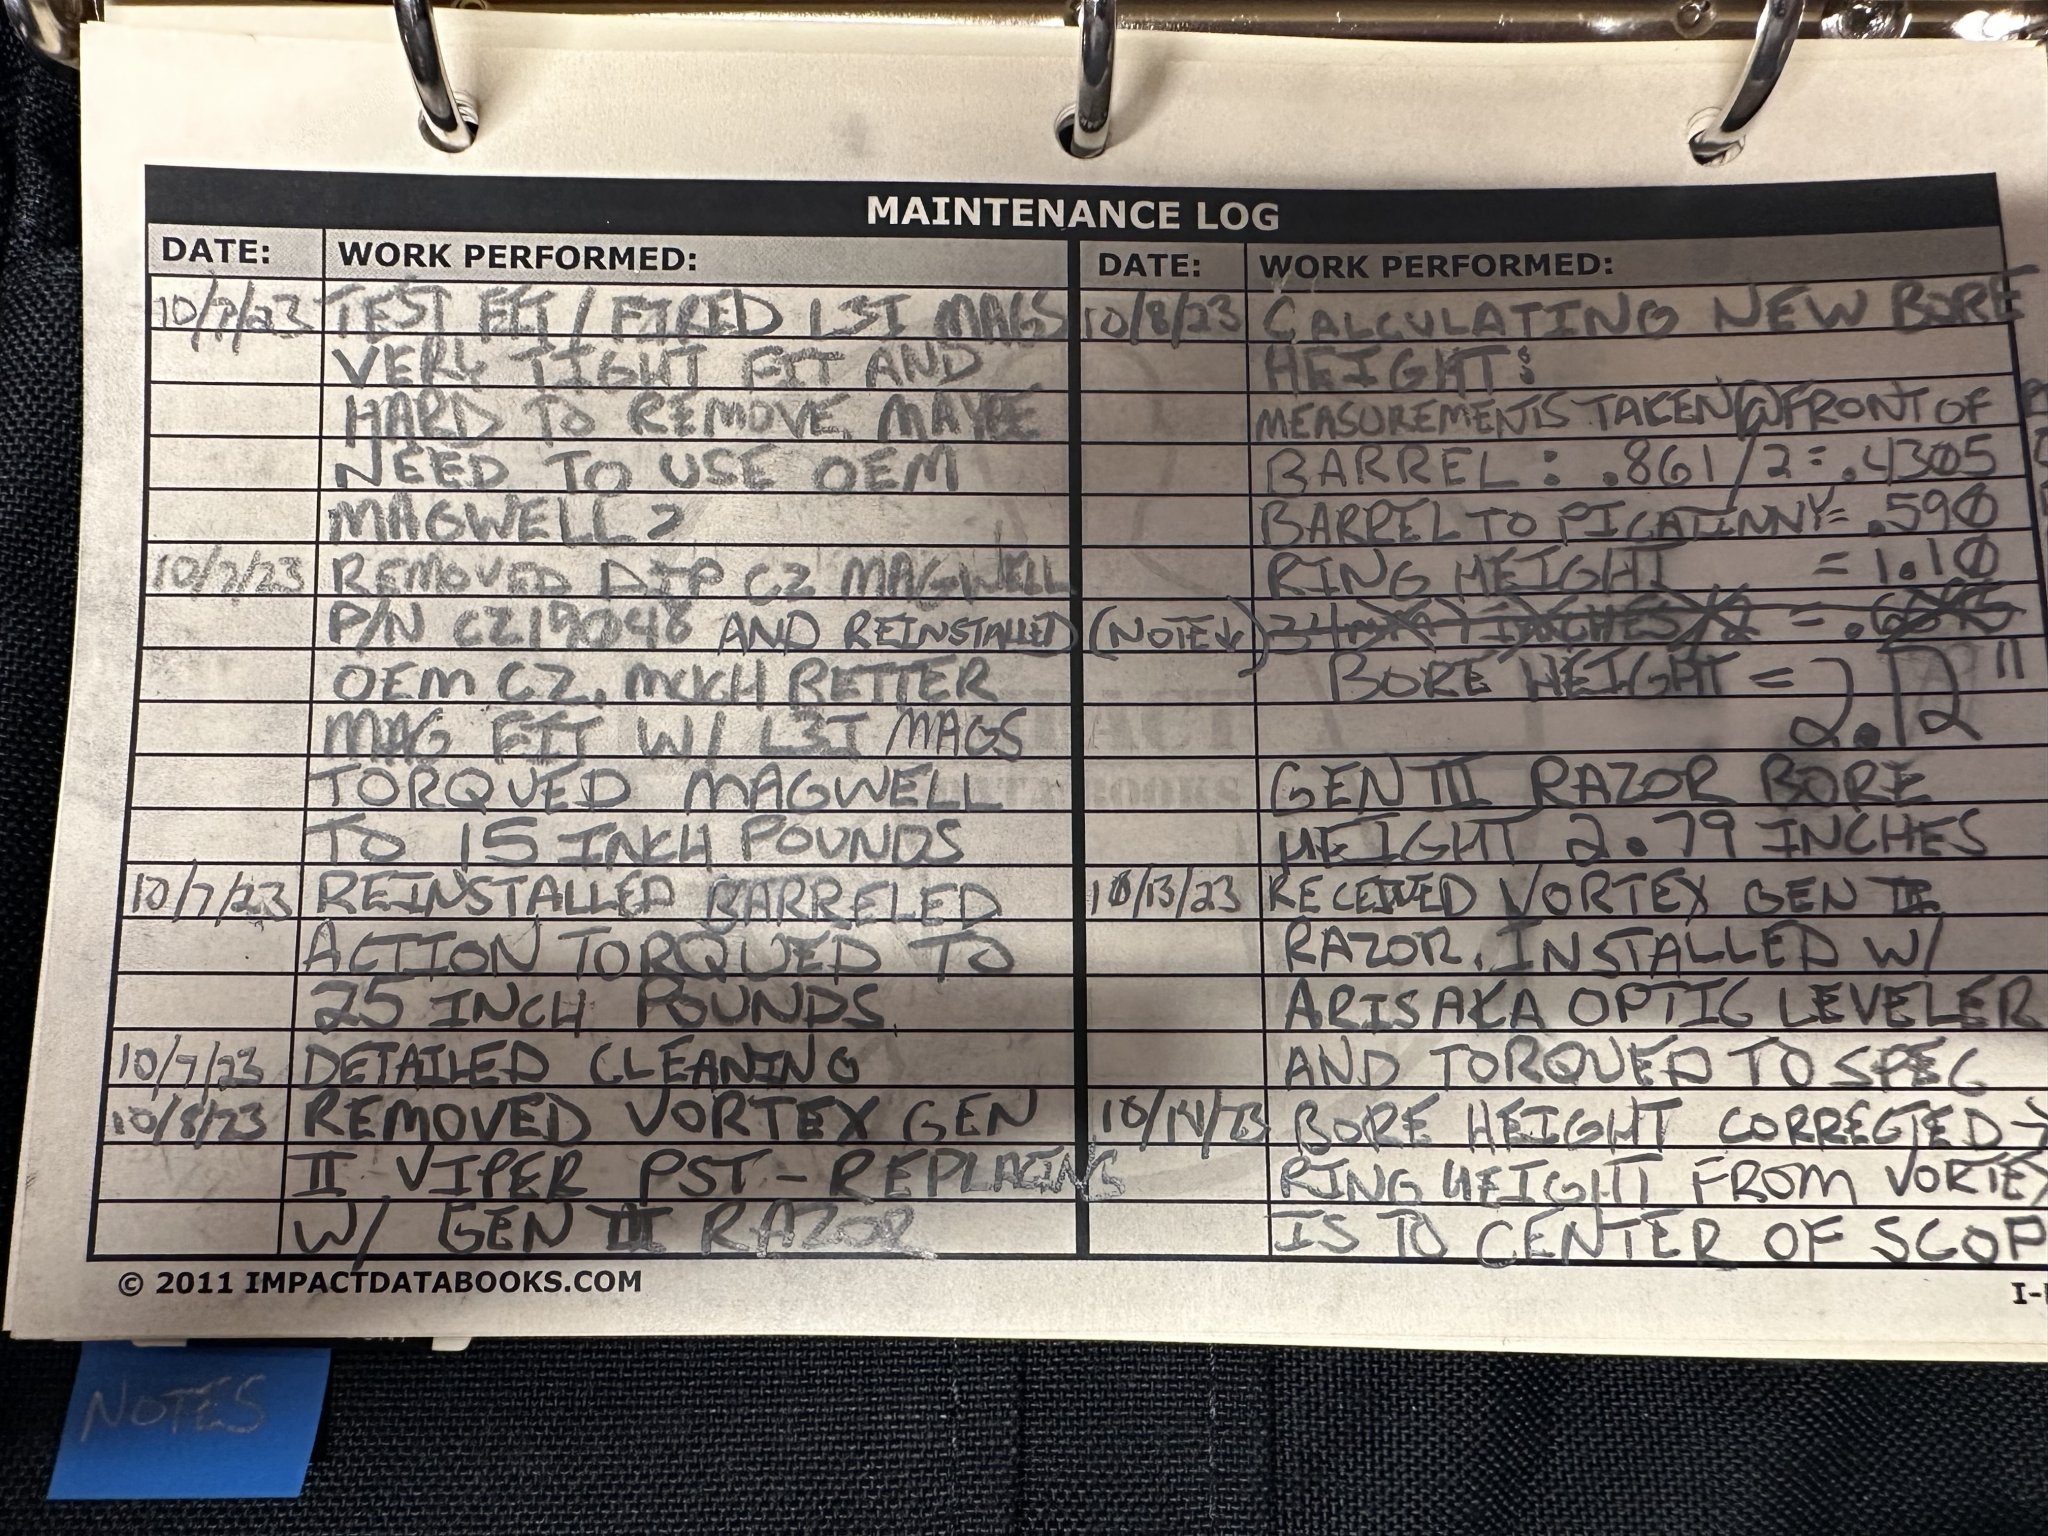 MAINTENANCE LOG
DATE: WORK PERFORMED:
10/7/23 TEST FIT / FIRED L3I MAGS
VERY TIGHT FIT AND
HARD TO REMOVE, MAYBE
NEED TO USE OEM
MAGWELL?
10/7/23 REMOVED DIP CZ MAGWELL
P/N CZ19048 AND REINSTALLED
OEM CZ, MUCH BETTER
MAG FIT W/ L3I MAGS
TORQUED MAGWELL
TO 15 INCH POUNDS
10/7/23 REINSTALLED BARRELED
ACTION TORQUED TO
25 INCH POUNDS
10/7/23 DETAILED CLEANING
10/8/23 REMOVED VORTEX GEN
II VIPER PST - REPLACING
W/ GEN III RAZOR
DATE: WORK PERFORMED:
10/8/23 CALCULATING NEW BORE
HEIGHT:
MEASUREMENTS TAKEN @ FRONT OF
BARREL: .861/2 = .4305
BARREL TO PICATINNY = .590
RING HEIGHT = 1.10
(NOTE↓) 34mm
BORE HEIGHT = 2.12"
2.12
GEN III RAZOR BORE
HEIGHT 2.79 INCHES
10/13/23 RECEIVED VORTEX GEN III
RAZOR. INSTALLED W/
ARISAKA OPTIC LEVELER
AND TORQUED TO SPEC
10/14/23 BORE HEIGHT CORRECTED →
RING HEIGHT FROM VORTEX
IS TO CENTER OF SCOP
© 2011 IMPACTDATABOOKS.COM
NOTES